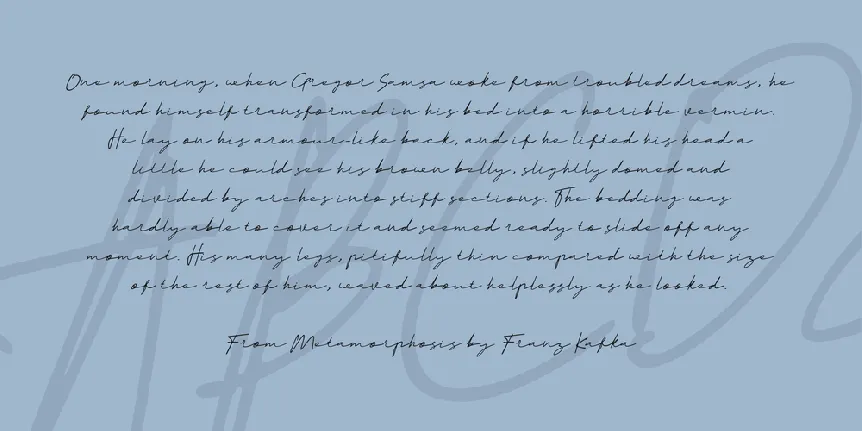 One morning, when Gregor Samsa woke from troubled dreams, he
found himself transformed in his bed into a horrible vermin.
He lay on his armour-like back, and if he lifted his head a
little he could see his brown belly, slightly domed and
divided by arches into stiff sections. The bedding was
hardly able to cover it and seemed ready to slide off any
moment. His many legs, pitifully thin compared with the size
of the rest of him, waved about helplessly as he looked.
From Metamorphosis by Franz Kafka
ABCD